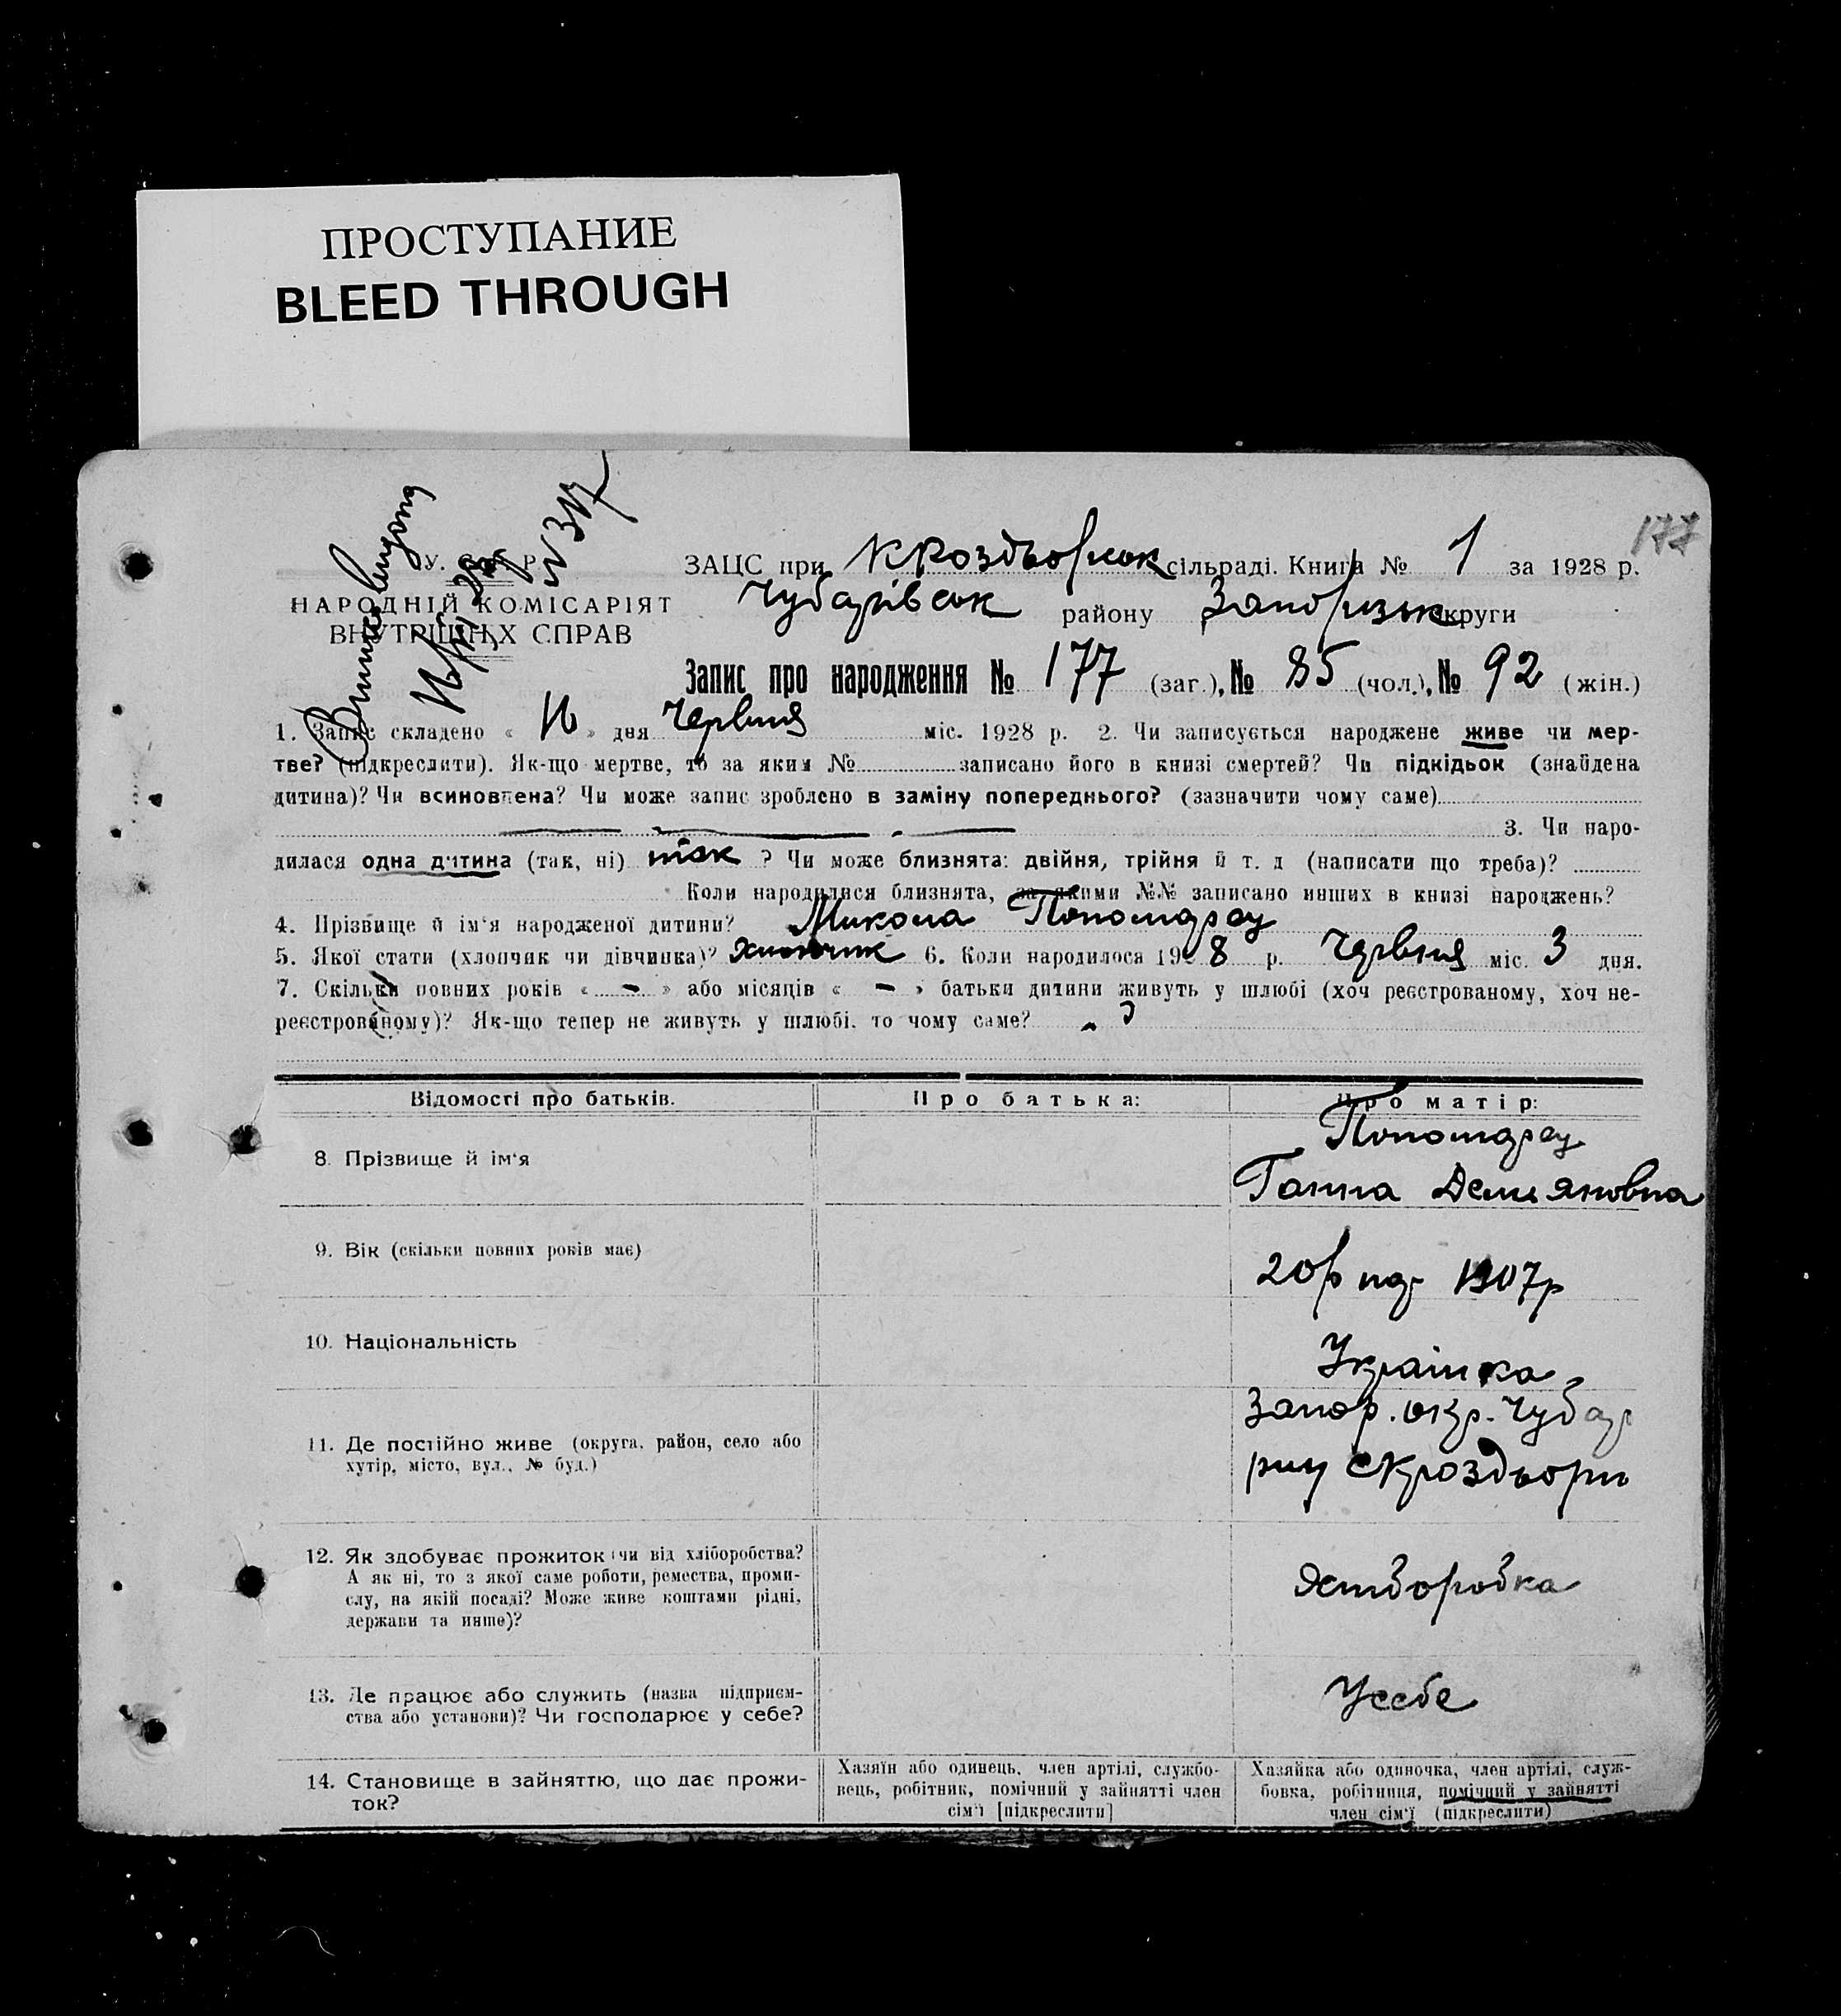 ПРОСТУПАНИЕ
BLEED THROUGH
177
У. С. Р. Р.
НАРОДНІЙ КОМІСАРІЯТ
ВНУТРІШНІХ СПРАВ
№ 317
ЗАЦС при Кроздворськ сільраді. Книга № 1 за 1928 р.
Чубарівськ району Запорізьк округи
Запис про народження № 177 (заг.), № 85 (чол.), № 92 (жін.)
1. Запис складено « » дня Червня міс. 1928 р. 2. Чи записується народжене живе чи мер-
тве? (підкреслити). Як-що мертве, то за яким № записано його в книзі смертей? Чи підкідьок (знайдена
дитина)? Чи всиновлена? Чи може запис зроблено в заміну попереднього? (зазначити чому саме)
3. Чи наро-
дилася одна дитина (так, ні) так ? Чи може близнята: двійня, трійня й т. д (написати що треба)?
Коли народилися близнята, за якими №№ записано инших в книзі народжень?
4. Прізвище й ім'я народженої дитини? Микола Пономарец
5. Якої стати (хлопчик чи дівчинка)? хлопчик 6. Коли народилося 19 8 р. Червня міс. 3 дня.
7. Скільки повних років « - » або місяців « - » батьки дитини живуть у шлюбі (хоч реєстрованому, хоч не-
реєстрованому)? Як-що тепер не живуть у шлюбі, то чому саме?
Відомості про батьків. Про батька: Про матір:
8. Прізвище й ім'я
Пономарец
Ганна Демяновна
9. Вік (скільки повних років має)
20 р 1907р
10. Національність
Украінка
11. Де постійно живе (округа, район, село або
хутір, місто, вул., № буд.)
Запор. окр. Чубар
рну с Кроздвори
12. Як здобуває прожиток (чи від хліборобства?
А як ні, то з якої саме роботи, ремества, проми-
слу, на якій посаді? Може живе коштами рідні,
держави та инше)?
Хлиборобка
13. Де працює або служить (назва підприєм-
ства або установи)? Чи господарює у себе?
Усебе
14. Становище в зайняттю, що дає прожи-
ток?
Хазяїн або одинець, член артілі, службо-
вець, робітник, помічний у зайнятті член
сім'ї [підкреслити]
Хазяйка або одиночка, член артілі, служ-
бовка, робітниця, помічний у зайнятті
член сім'ї (підкреслити)